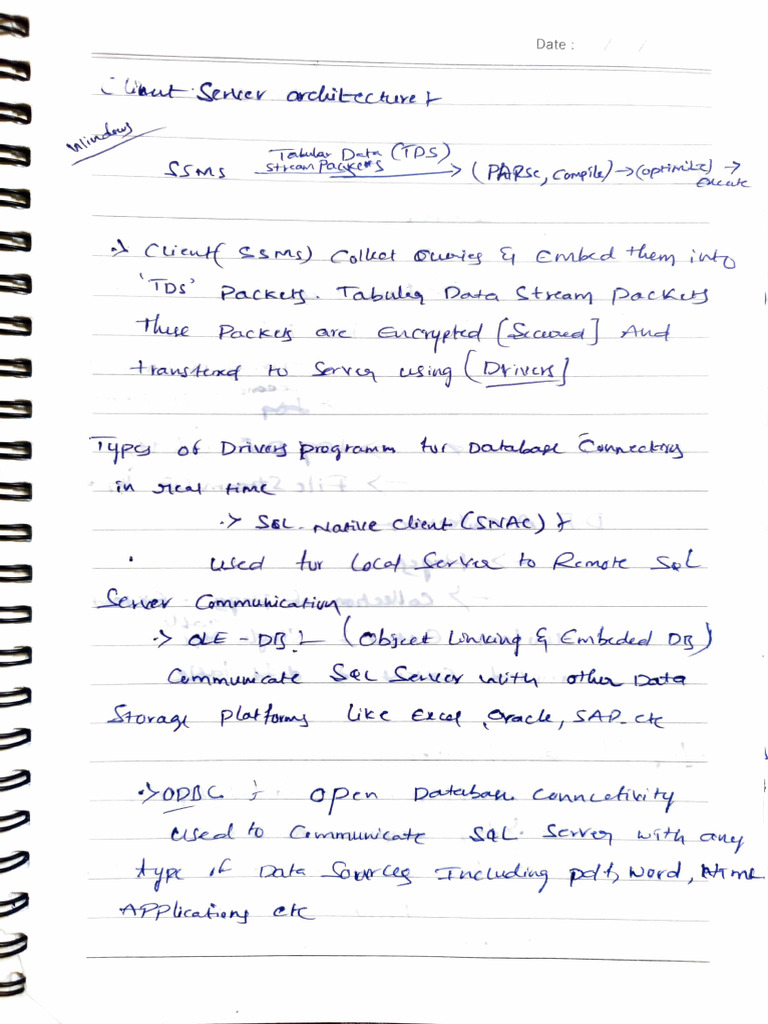 Date : / /
Client Server architecture :-
Windows
SSMS Tabular Data (TDS) Stream Packets → (PARSE, Compile) → (optimize) → Execute
-> Client (SSMS) Collect Queries & Embed them into
'TDS' Packets. Tabular Data Stream Packets
These Packets are Encrypted [Secured] And
transfered to Server using [Drivers]
Types of Drivers programm for Database Connectors
in real time
-> SQL Native Client (SNAC) :-
used for Local Server to Remote SQL
Server Communication
-> OLE-DB :- (Object Linking & Embeded DB)
Communicate SQL Server with other Data
Storage platforms like Excel, Oracle, SAP etc
-> ODBC :- Open Database Connectivity
used to Communicate SQL Server with any
type of Data Sources Including pdf, Word, HTML
APPlications etc